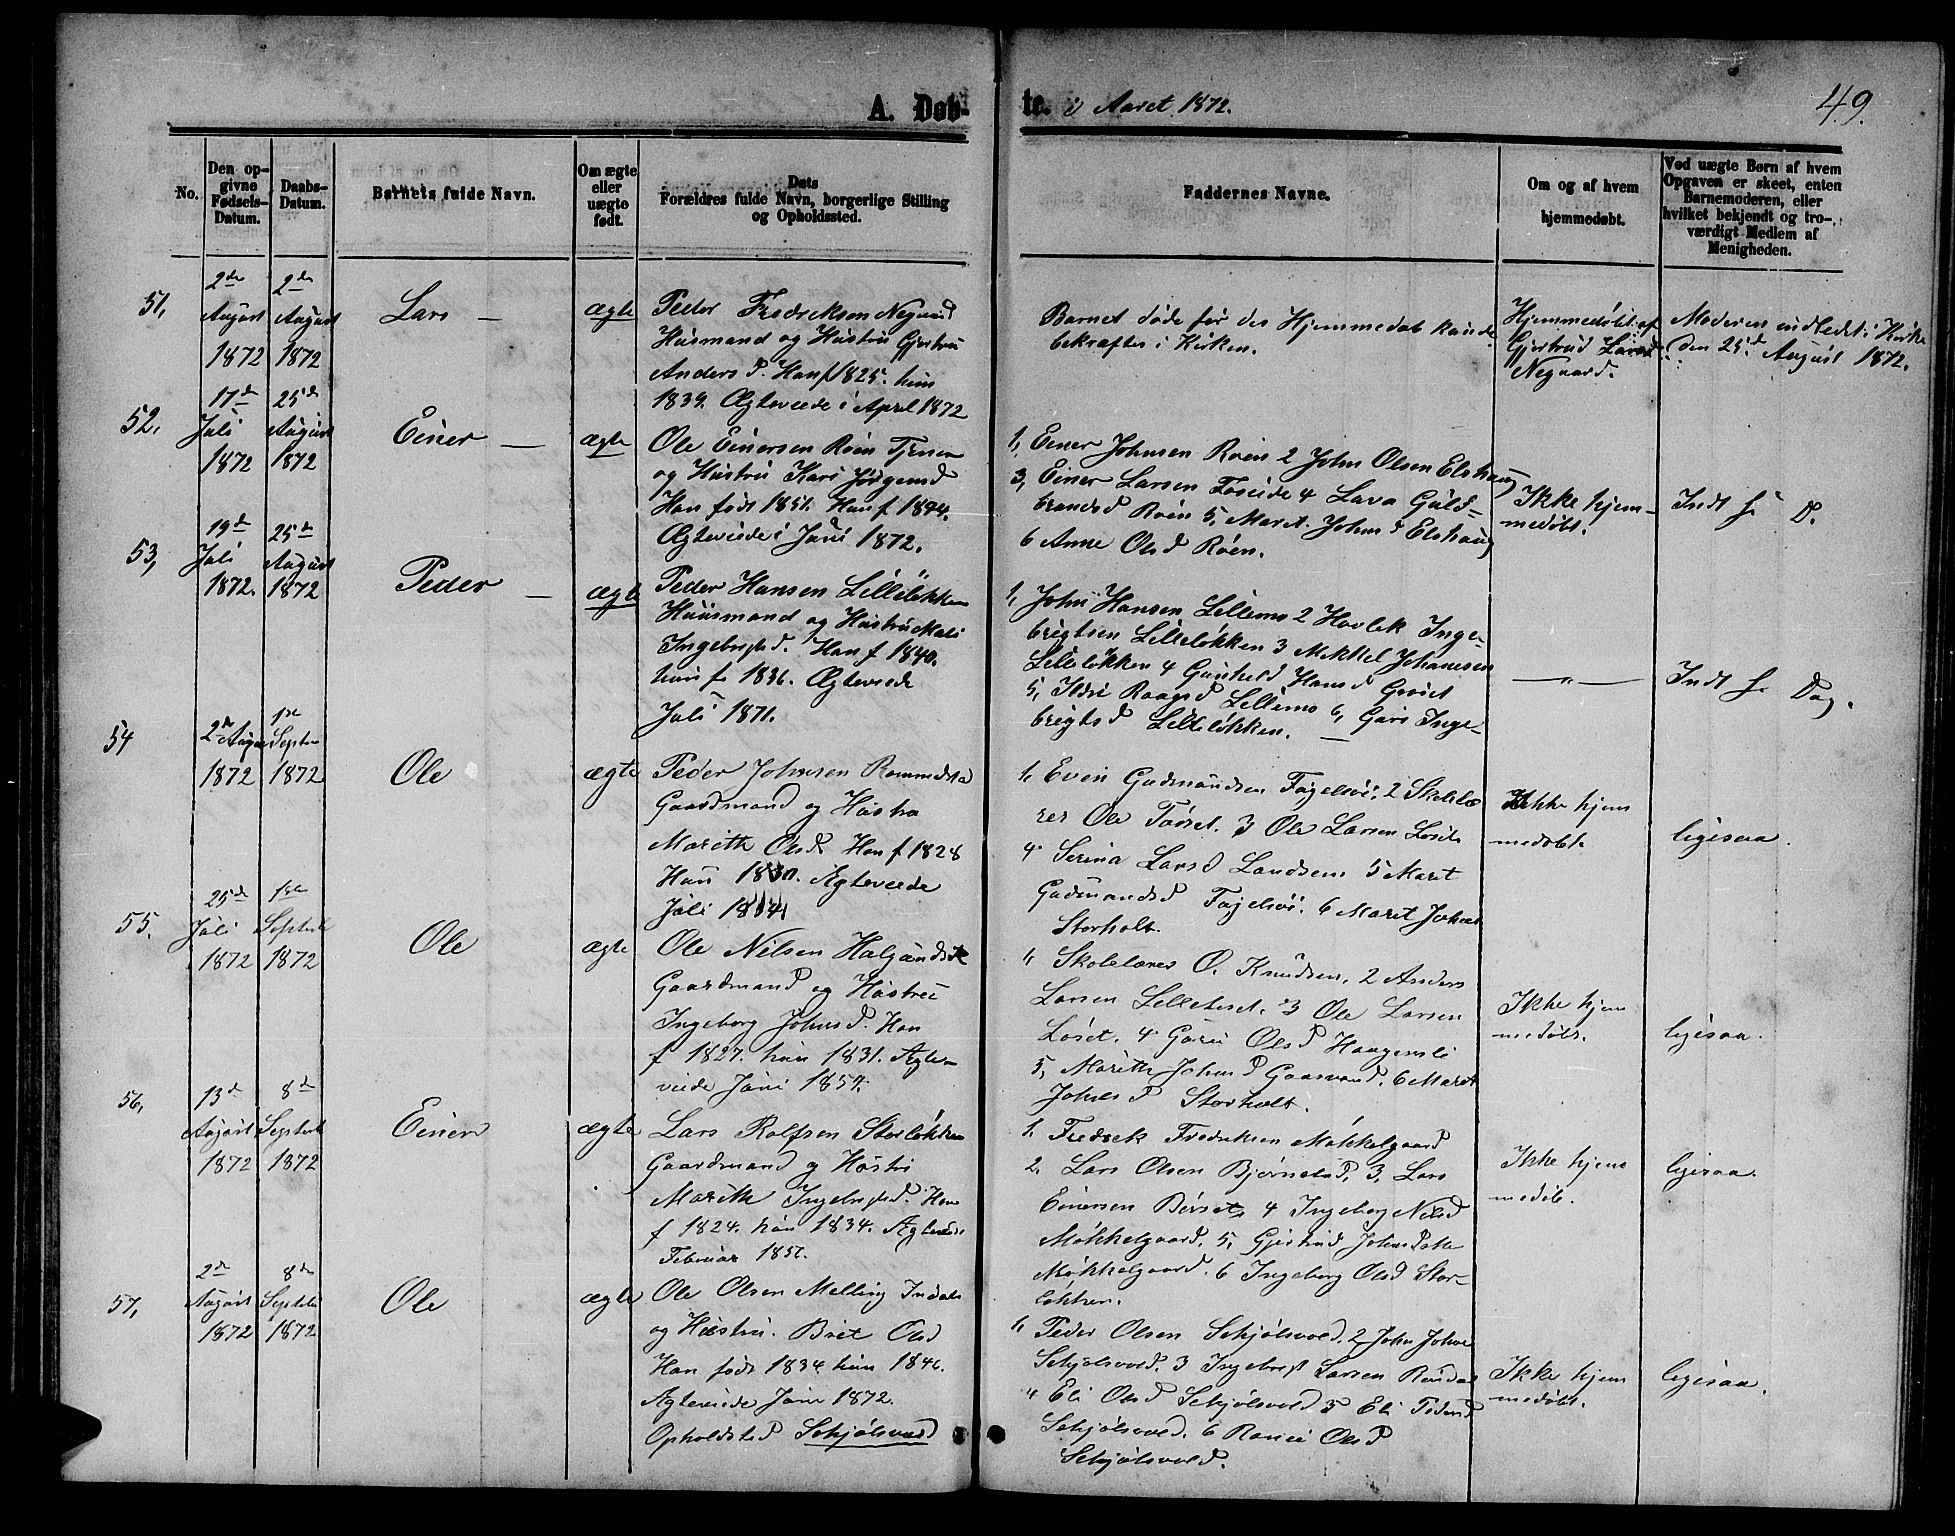 A. Døb-
te. i Aaret 1872.
49.
No.
Den op-
givne
Fødsels-
Datum.
Daabs-
Datum.
Barnets fulde Navn.
Om ægte
eller
uægte
født.
Dets
Forældres fulde Navn, borgerlige Stilling
og Opholdssted.
Faddernes Navne.
Om og af hvem
hjemmedøbt.
Ved uægte Børn af hvem
Opgaven er skeet, enten
Barnemoderen, eller
hvilket bekjendt og tro-
værdigt Medlem af
Menigheden.
51,
2de
August
1872
2de
August
1872
Lars —
ægte
Peder Fredriksen Negaard
Husmand og Hustru Gjertru
Anders d. Han f 1825. hun
1839. Ægteviede i April 1872
Barnet døde før des Hjemmedøb kunde
bekræftes i Kirken.
Hjemmedøbt af
Gjertrud Larsd
Negaard.
Moderen indledet i Kirke
den 25d August 1872.
52,
17de
Juli
1872
25de
August
1872
Einer —
ægte
Ole Einersen Røen Tjener
og Hustru Kari Jørgensd
Han født 1851. Hun f 1844.
Ægteviede i Juni 1872.
1, Einer Johnsen Roen 2 John Olsen Elshaug
3, Einer Larsen Foseide 4 Lava Guld-
brandsd Roen 5, Maret Johns d Elshaug
6 Anne Olsd Røen.
Ikke hjem-
medøbt.
Indt s. D.
53,
19de
Juli
1872.
25de
August
1872
Peder —
ægte
Peder Hansen Lilleløkken
Huusmand og Hustru Mali
Ingebrigtsd. Han f 1840.
hun f. 1836. Ægteviede
Juli 1871.
1, John Hansen Lillemo 2 Havlek Inge-
brigtsen Lilleløkken 3 Mikkel Johansen
Lilleløkken 4 Gunhild Hans d
5, Ildri Roags d Lillemo 6, Guro Inge-
brigtsd Lilleløkken. —
— " —
Indt s. Dag.
54
2de August
1872
1ste Septem
1872
Ole
ægte
Peder Johnsen
Gaardmand og Hustru
Marith Olsd. Han f 1828
Hun 1830. Ægteviede
Juli
1, Even Gudmundsen Fagelhøi, 2 Skolelæ
rer Ole 3 Ole Larsen Løset
4 Serina Lars d Landsem 5 Maret
Gudmunds d Fagelhøi. 6 Maret Johns
Storholt.
Ikke hjem
medøbt
ligesaa.
55.
25de
Juli
1872
1ste
Septemb
1872
Ole
ægte
Ole Nilsen
Gaardmand og Hustru
Ingeborg Johnsd. Han
f 1827. hun 1831. Ægte-
viede Juni 1854.
1, Skolelærer O. Knudsen, 2 Anders
Larsen 3 Ole Larsen
Løset. 4 Guri Olsd
5, Marith Johns d 6 Maret
Johns d Storholt.
Ikke hjem
medøbt.
ligesaa.
56,
13de
August
1872
8de
Septemb
1872
Einer
ægte
Lars Rolfsen Storløkken
Gaardmand og Hustru
Marith Ingebrigtsd. Han
f 1824. hun 1834. Ægteviede
Februar
1, Fredrek Fredriksen Møkkelgaard
2. Lars Olsen Bjørnstad, 3, Lars
Einersen Børset 4 Ingeborg Nilsd
Møkkelgaard, 5, Gjertrud Johns d
Møkkelgaard. 6 Ingeborg Olsd Stor-
løkken.
Ikke hjem
medøbt.
ligesaa.
57,
2de
August
1872
8de
Septemb
1872
Ole
ægte
Ole Olsen Melling
og Hustru. Bret Olsd
Han født 1834. hun 1846.
Ægteviede Juni 1872.
Opholdsted Schjølsvold
1, Peder Olsen Schjølsvold, 2 John Johns
Schjølsvold. 3 Ingebrigt Larsen
4 Eli Olsd Schjølsvold 5 Eli Pedersd
Schjølsvold. 6 Olsd
Schjølsvold.
Ikke hjem
medøbt.
ligesaa.